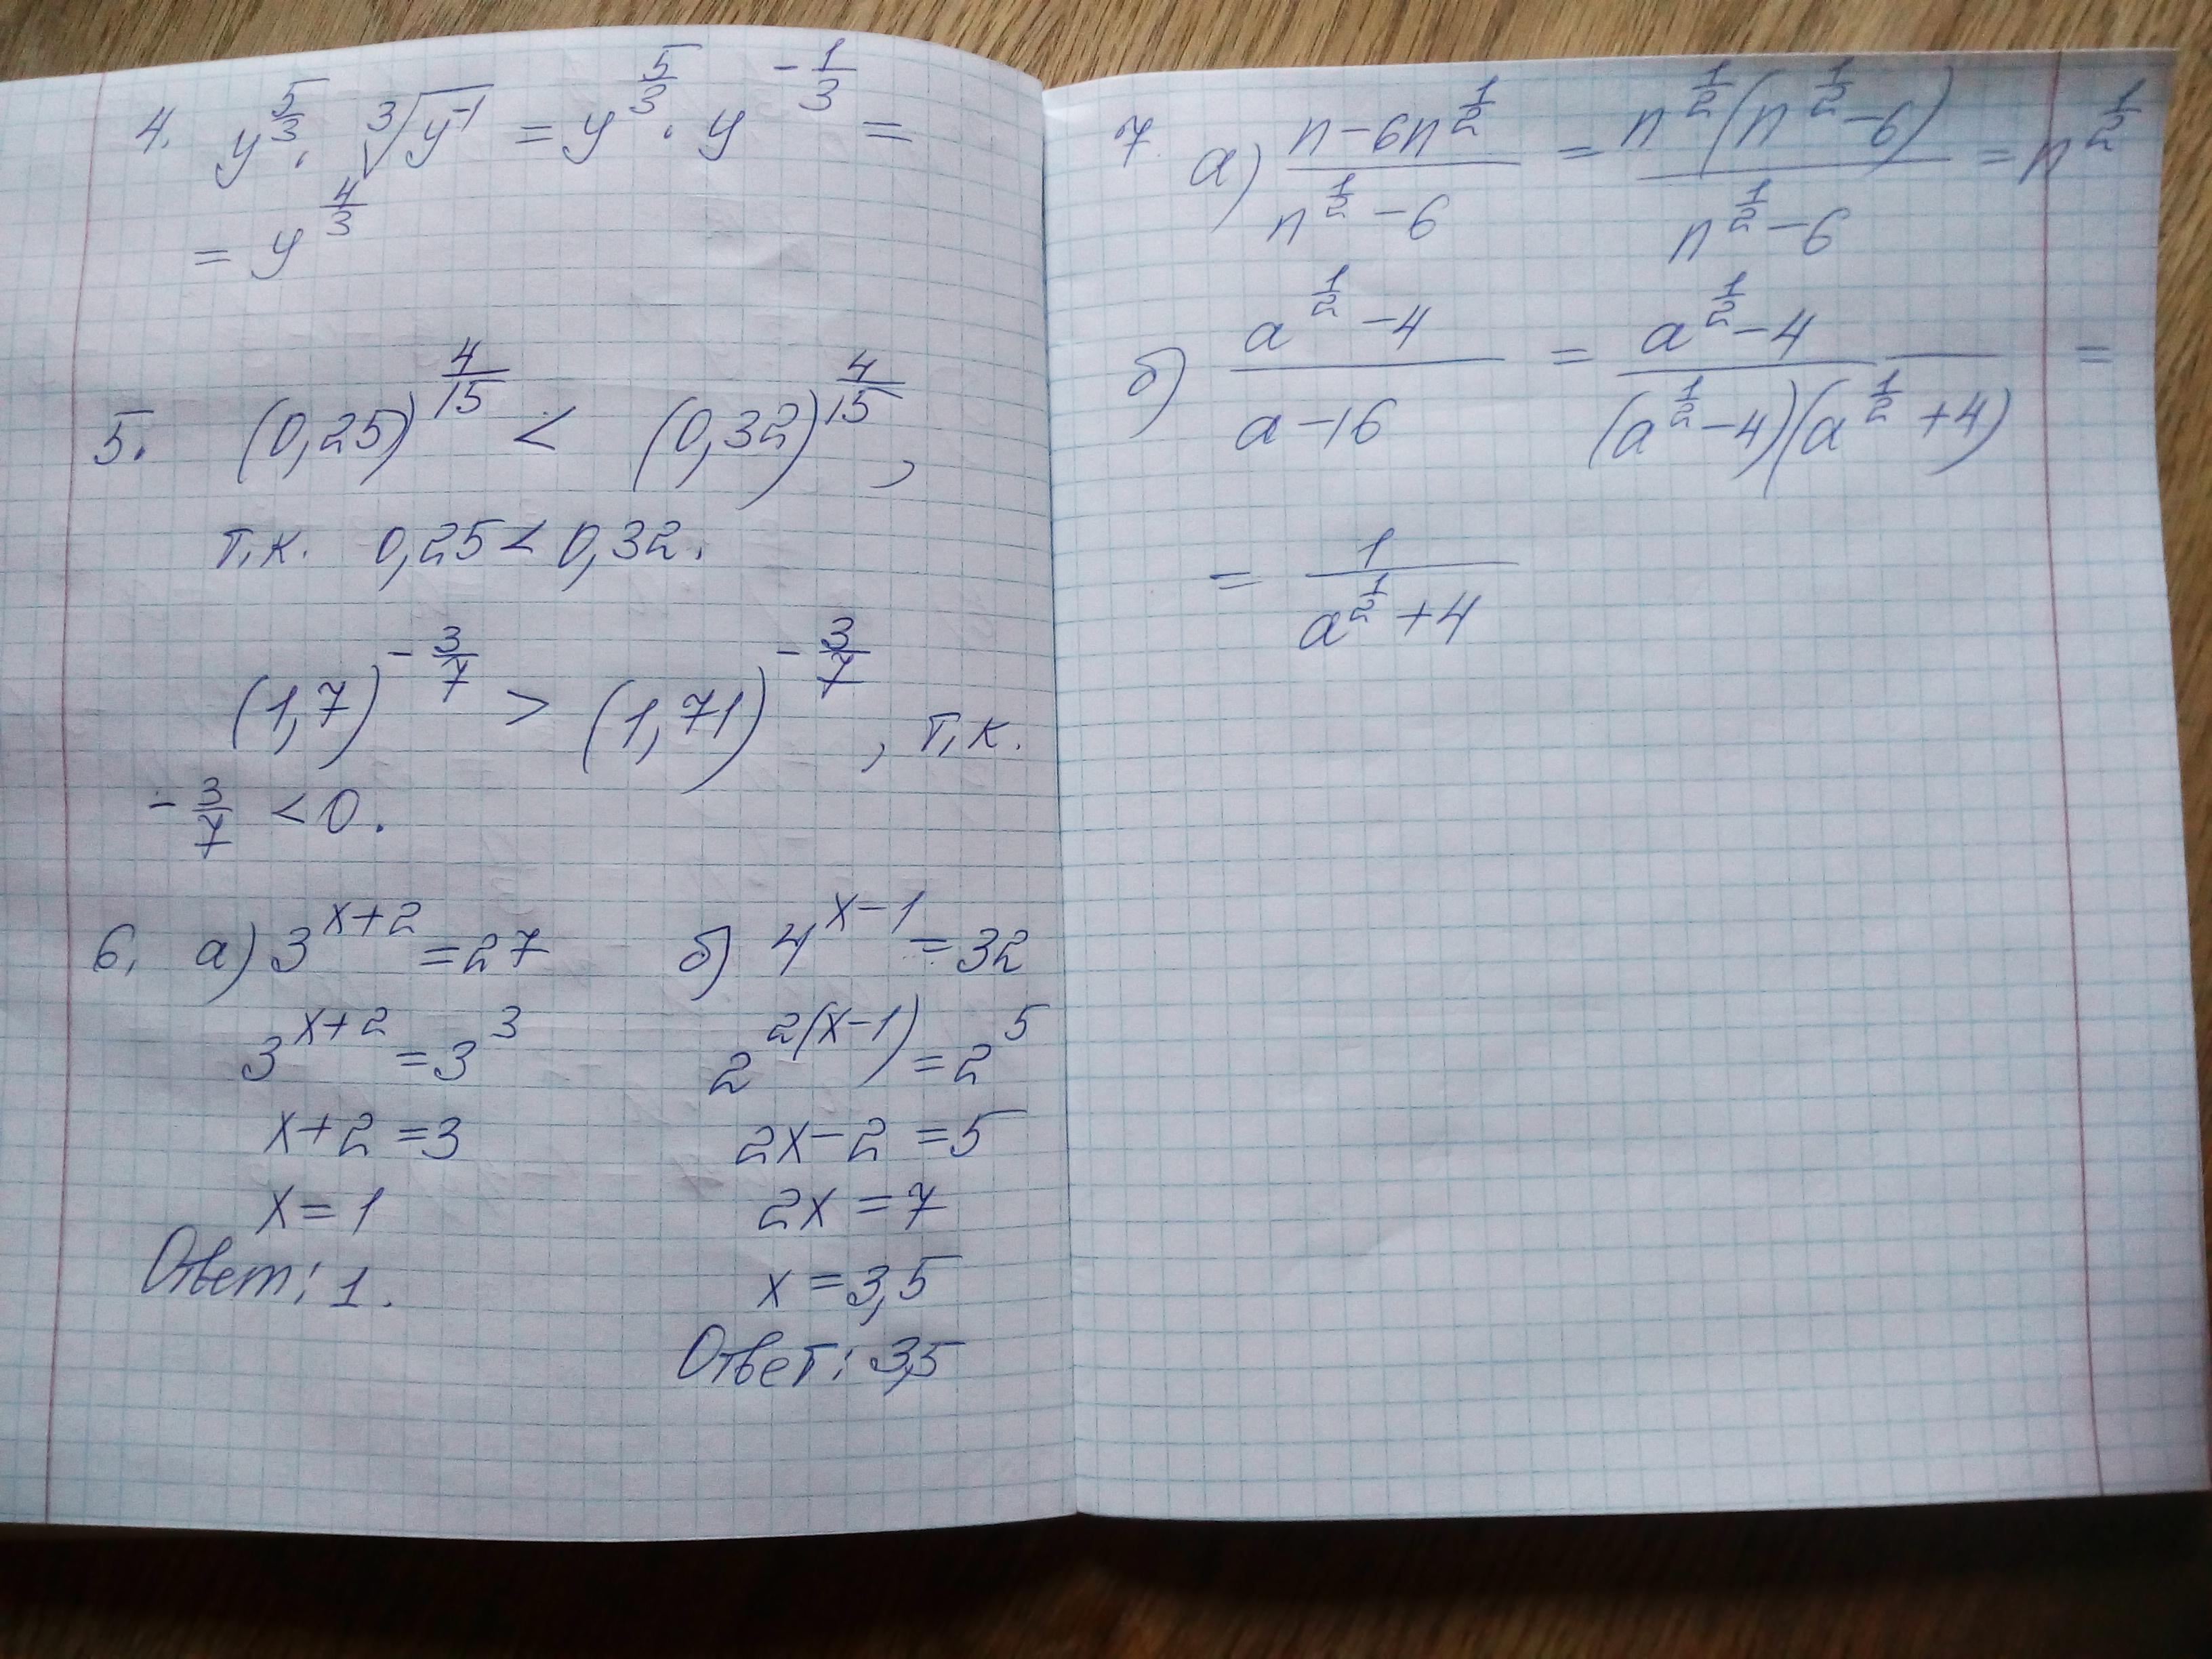 4. y^{5/3} · ∛(y^{-1}) = y^{5/3} · y^{-1/3} =
= y^{4/3}
5. (0,25)^{4/15} < (0,32)^{4/15},
т.к. 0,25 < 0,32.
(1,7)^{-3/7} > (1,71)^{-3/7}, т.к.
-3/7 < 0.
6. а) 3^{x+2} = 27
3^{x+2} = 3^3
x+2 = 3
x = 1
Ответ: 1.
б) 4^{x-1} = 32
2^{2(x-1)} = 2^5
2x-2 = 5
2x = 7
x = 3,5
Ответ: 3,5
7. а) (n-6n^{1/2})/(n^{1/2}-6) = (n^{1/2}(n^{1/2}-6))/(n^{1/2}-6) = n^{1/2}
б) (a^{1/2}-4)/(a-16) = (a^{1/2}-4)/((a^{1/2}-4)(a^{1/2}+4)) =
= 1/(a^{1/2}+4)